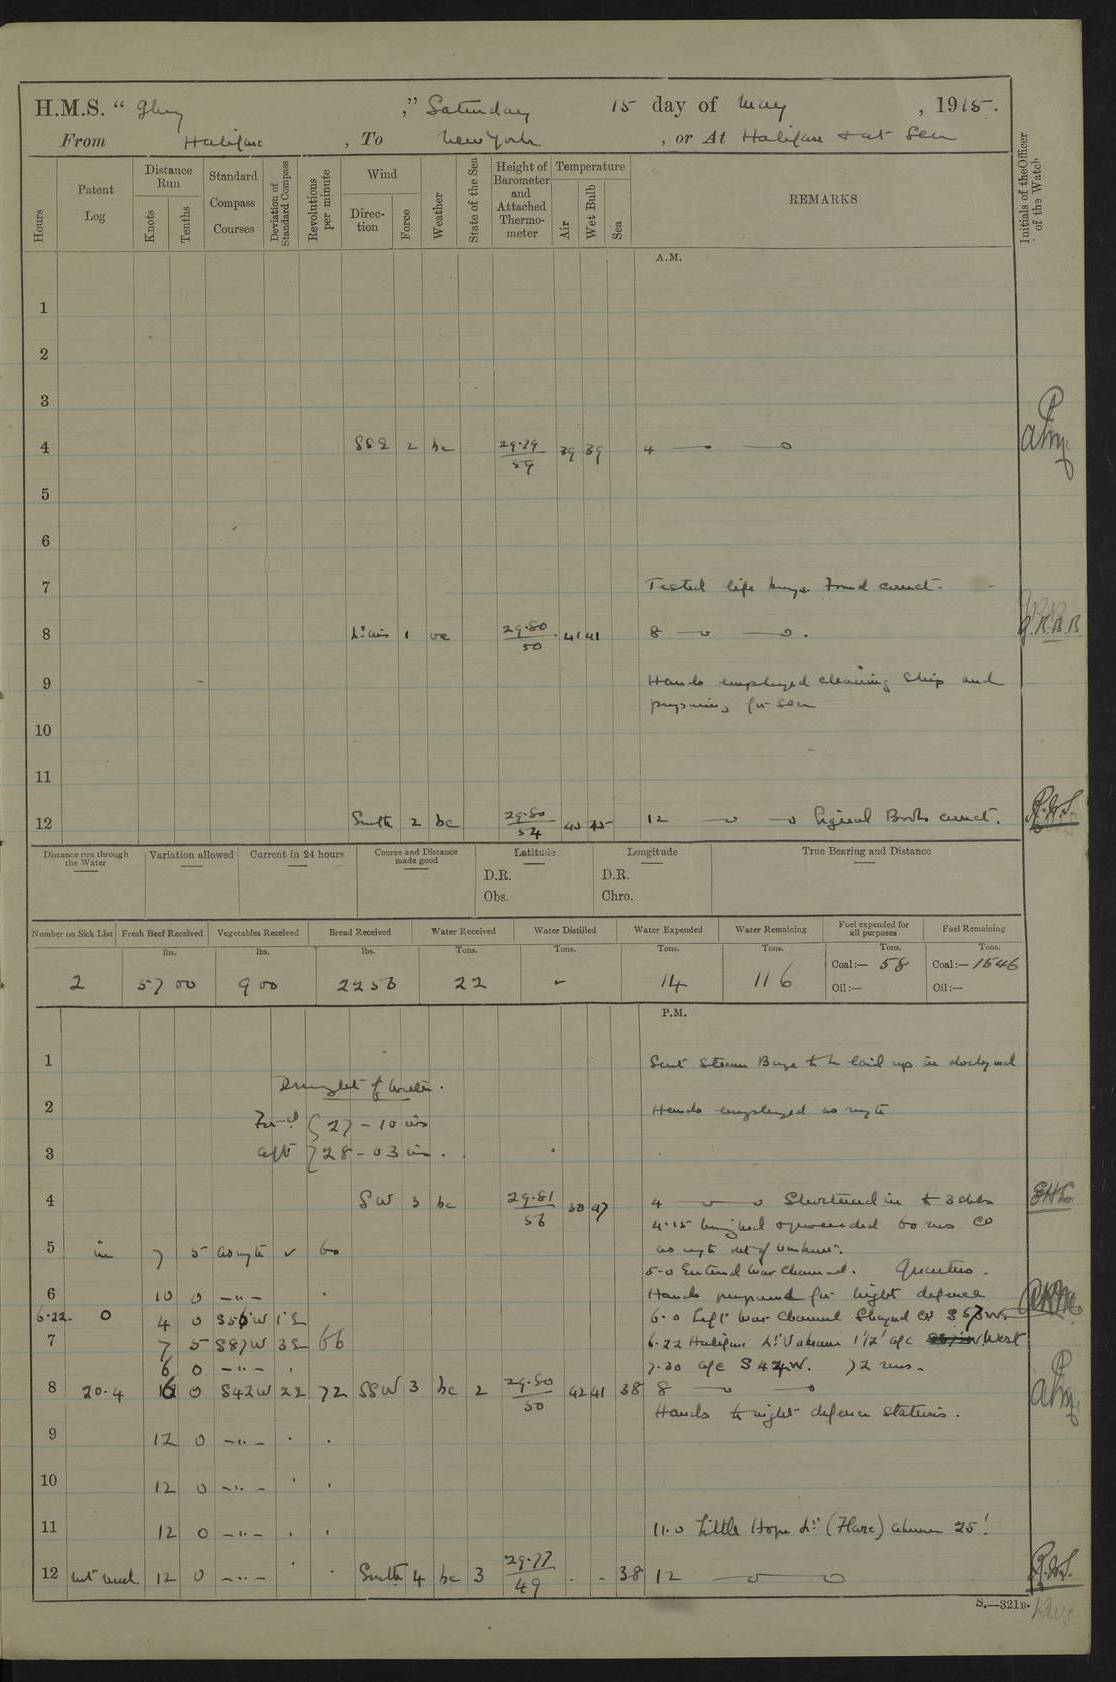 H.M.S. “ Glory ,” Saturday 15 day of May , 1915.
From Halifax , To New York , or At Halifax & at Sea
Hours
Patent Log
Distance Run
Knots
Tenths
Standard Compass Courses
Deviation of Standard Compass
Revolutions per minute
Wind
Direc-tion
Force
Weather
State of the Sea
Height of Barometer and Attached Thermo-meter
Temperature
Air
Wet Bulb
Sea
REMARKS
Initials of the Officer of the Watch
A.M.
1
2
3
4 SSE 2 bc 29·79 59 39 39 4
5
6
7 Tested life buoys. Found correct.
8 1 oc 29·80 50 41 41 8
9 Hands employed cleaning Ship and
preparing for sea
10
11
12 South 2 bc 29·80 54 12 Signal Books correct.
Distance run through the Water
Variation allowed
Current in 24 hours
Course and Distance made good
Latitude
D.R.
Obs.
Longitude
D.R.
Chro.
True Bearing and Distance
Number on Sick List
Fresh Beef Received
Vegetables Received
Bread Received
Water Received
Water Distilled
Water Expended
Water Remaining
Fuel expended for all purposes
Fuel Remaining
lbs. lbs. lbs. Tons. Tons. Tons. Tons. Tons. Tons.
2 5700 900 2256 22 - 14 116 Coal:— 58 Coal:— 1546
Oil:— Oil:—
P.M.
1 Sent Steam Barge to be laid up in dockyard
Draught of Water.
2 Hands employed as reqte
For'd 27 - 10 ins
3 aft 28 - 03 in.
4 SW 3 bc 29·81 56 50 47 4 Shortened in to 3 cbls
4·15 weighed & proceeded 60 revs Co
5 in 7 5 as reqte 60 as reqte out of harbour.
5·0 Entered War Channel. Quarters.
6 10 0 -"- Hands prepared for night defence
6·22 0 4 0 S56W 1E 6·0 Left War Channel Shaped Co S57W.
7 7 5 S87W 3E 66 6·22 Halifax Lt Vabeam 1½' a/c West
6 0 -"- 7·30 a/c S42W. 72 revs.
8 20·4 6 0 S42W 2E 72 SSW 3 bc 2 29·80 50 42 41 38 8
Hands to night defence stations.
9 12 0 -"-
10 12 0 -"-
11 12 0 -"- 11·0 Little Hope Lt (Flare) abeam 25'.
12 12 0 -"- South 4 bc 3 29·77 49 38 12
S.—321B.